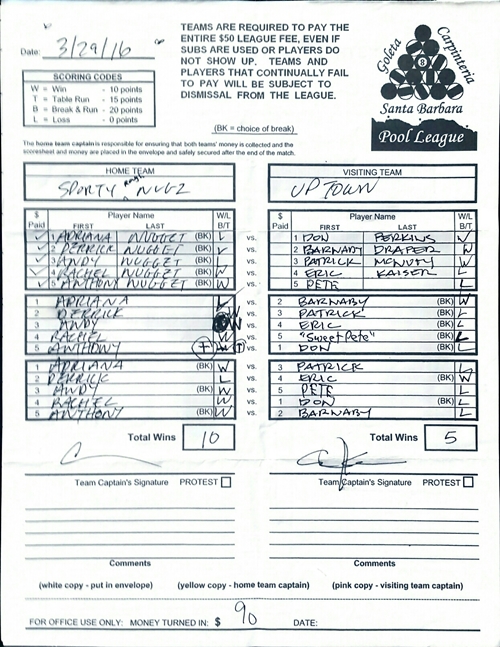 TEAMS ARE REQUIRED TO PAY THE
ENTIRE $50 LEAGUE FEE, EVEN IF
SUBS ARE USED OR PLAYERS DO
NOT SHOW UP. TEAMS AND
PLAYERS THAT CONTINUALLY FAIL
TO PAY WILL BE SUBJECT TO
DISMISSAL FROM THE LEAGUE.
Date: 3/29/16
SCORING CODES
W = Win - 10 points
T = Table Run - 15 points
B = Break & Run - 20 points
L = Loss - 0 points
Goleta Carpinteria
8
Santa Barbara
Pool League
(BK = choice of break)
The home team captain is responsible for ensuring that both teams' money is collected and the
scoresheet and money are placed in the envelope and safely secured after the end of the match.
HOME TEAM VISITING TEAM
SPORTY NUGZ UPTOWN
$ Paid Player Name FIRST LAST W/L B/T $ Paid Player Name FIRST LAST W/L B/T
1 ADRIANA NUGGET (BK) L vs. 1 DON PERKINS W
2 DERRICK NUGGET (BK) vs. 2 BARNABY DRAPER W
3 ANDY NUGGET (BK) L vs. 3 PATRICK MCNUTY W
4 RACHEL NUGGET (BK) W vs. 4 ERIC KAISER L
5 ANTHONY NUGGET (BK) W vs. 5 PETE L
1 ADRIANA L vs. 2 BARNABY (BK) W
2 DERRICK W vs. 3 PATRICK (BK) L
3 ANDY W vs. 4 ERIC (BK) L
4 RACHEL W vs. 5 "Sweet Pete" (BK) L
5 ANTHONY T vs. 1 DON (BK) L
1 ADRIANA (BK) W vs. 3 PATRICK L
2 DERRICK L vs. 4 ERIC (BK) W
3 ANDY (BK) W vs. 5 PETE L
4 RACHEL W vs. 1 DON (BK) L
5 ANTHONY (BK) W vs. 2 BARNABY L
Total Wins 10 Total Wins 5
Team Captain's Signature PROTEST Team Captain's Signature PROTEST
Comments Comments
(white copy - put in envelope) (yellow copy - home team captain) (pink copy - visiting team captain)
FOR OFFICE USE ONLY: MONEY TURNED IN: $ 90 DATE: